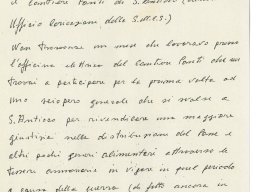 il Cantiere Ponti di S. Antioco
Ufficio locazioni della S.M.E.S.)
Non trascorse un mese che lavoravo presso
l'officina attrezzo del cantiere Ponti che mi
trovai a partecipare per la prima volta ad
uno sciopero generale che si svolse a
S. Antioco per rivendicare una maggiore
giustizia nella distribuzione del Pane e
altri pochi generi alimentari attraverso le
tessere annonarie in vigore in quel periodo
a causa della guerra (di fatto ancora in